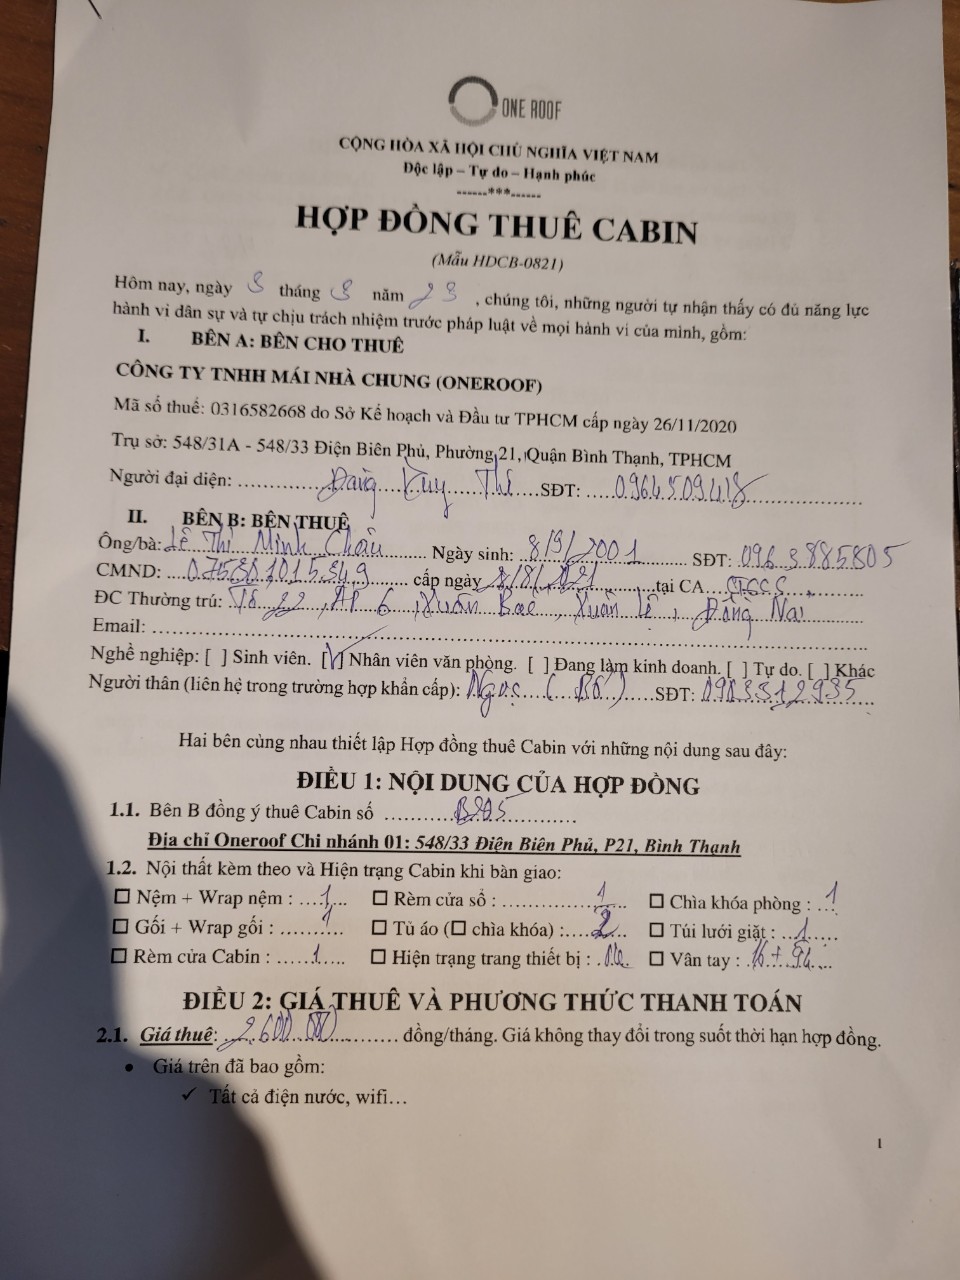 ONE ROOF
CỘNG HÒA XÃ HỘI CHỦ NGHĨA VIỆT NAM
Độc lập – Tự do – Hạnh phúc
------***------
HỢP ĐỒNG THUÊ CABIN
(Mẫu HDCB-0821)
Hôm nay, ngày 3 tháng 3 năm 23, chúng tôi, những người tự nhận thấy có đủ năng lực
hành vi dân sự và tự chịu trách nhiệm trước pháp luật về mọi hành vi của mình, gồm:
I. BÊN A: BÊN CHO THUÊ
CÔNG TY TNHH MÁI NHÀ CHUNG (ONEROOF)
Mã số thuế: 0316582668 do Sở Kế hoạch và Đầu tư TPHCM cấp ngày 26/11/2020
Trụ sở: 548/31A - 548/33 Điện Biên Phủ, Phường 21, Quận Bình Thạnh, TPHCM
Người đại diện: Đặng Duy Thế SĐT: 0964509418
II. BÊN B: BÊN THUÊ
Ông/bà: Lê Thị Minh Châu Ngày sinh: 8/9/2001 SĐT: 0963885805
CMND: cấp ngày 8/8/2021 tại CA
ĐC Thường trú: Tổ 22, Ấp 6, Xuân Bắc, Xuân Lộc, Đồng Nai
Email:
Nghề nghiệp: [ ] Sinh viên. [✓] Nhân viên văn phòng. [ ] Đang làm kinh doanh. [ ] Tự do. [ ] Khác
Người thân (liên hệ trong trường hợp khẩn cấp): Ngọc (Bố) SĐT: 0903312935
Hai bên cùng nhau thiết lập Hợp đồng thuê Cabin với những nội dung sau đây:
ĐIỀU 1: NỘI DUNG CỦA HỢP ĐỒNG
1.1. Bên B đồng ý thuê Cabin số
Địa chỉ Oneroof Chi nhánh 01: 548/33 Điện Biên Phủ, P21, Bình Thạnh
1.2. Nội thất kèm theo và Hiện trạng Cabin khi bàn giao:
☐ Nệm + Wrap nệm : 1 ☐ Rèm cửa sổ : 1 ☐ Chìa khóa phòng : 1
☐ Gối + Wrap gối : 1 ☐ Tủ áo (☐ chìa khóa) : 2 ☐ Túi lưới giặt : 1
☐ Rèm cửa Cabin : 1 ☐ Hiện trạng trang thiết bị : ☐ Vân tay : 16 + 94
ĐIỀU 2: GIÁ THUÊ VÀ PHƯƠNG THỨC THANH TOÁN
2.1. Giá thuê: đồng/tháng. Giá không thay đổi trong suốt thời hạn hợp đồng.
• Giá trên đã bao gồm:
✓ Tất cả điện nước, wifi…
1